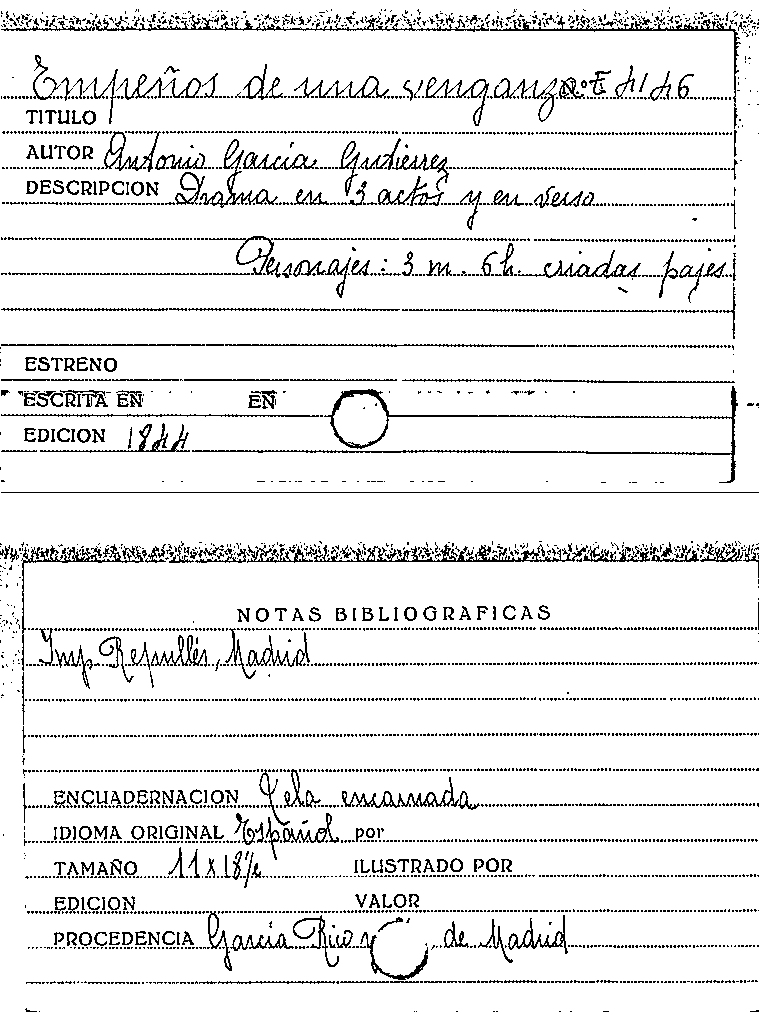 Empeños de una venganza Nº E 4146
TITULO
AUTOR Antonio García Gutiérrez
DESCRIPCION Drama en 3 actos y en verso
Personajes: 3 m. 6 h. criadas pajes
ESTRENO
ESCRITA EN EN
EDICION 1844
NOTAS BIBLIOGRAFICAS
Imp. Repullés, Madrid
ENCUADERNACION Tela encarnada
IDIOMA ORIGINAL Español por
TAMAÑO 11 x 18½ ILUSTRADO POR
EDICION VALOR
PROCEDENCIA García Rico y de Madrid